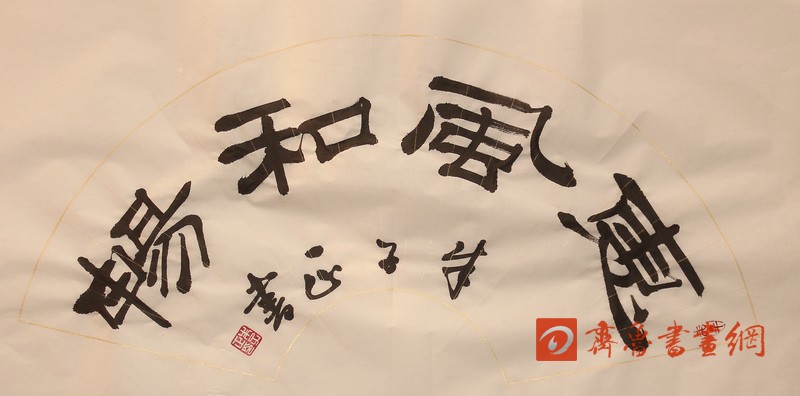 惠風和暢
書
齊魯書畫網